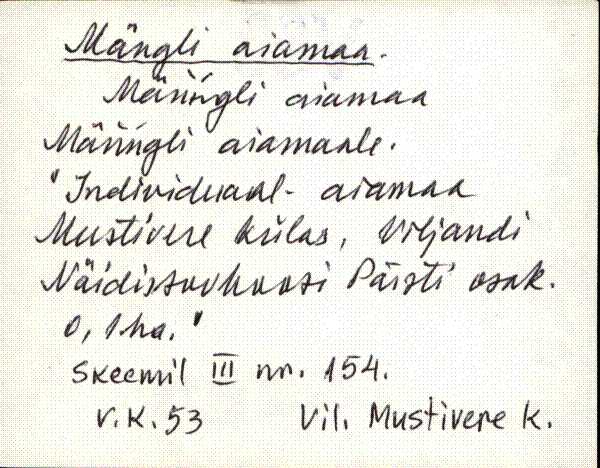 Mängli aiamaa.
Mäńńgli aiamaa
Mäńńgli aiamaale.
"Individuaal- aiamaa
Mustivere külas, Viljandi
Näidissovhoosi Päisti osak.
0,1 ha."
Skeemil III nr. 154.
V.K. 53 Vil. Mustivere k.